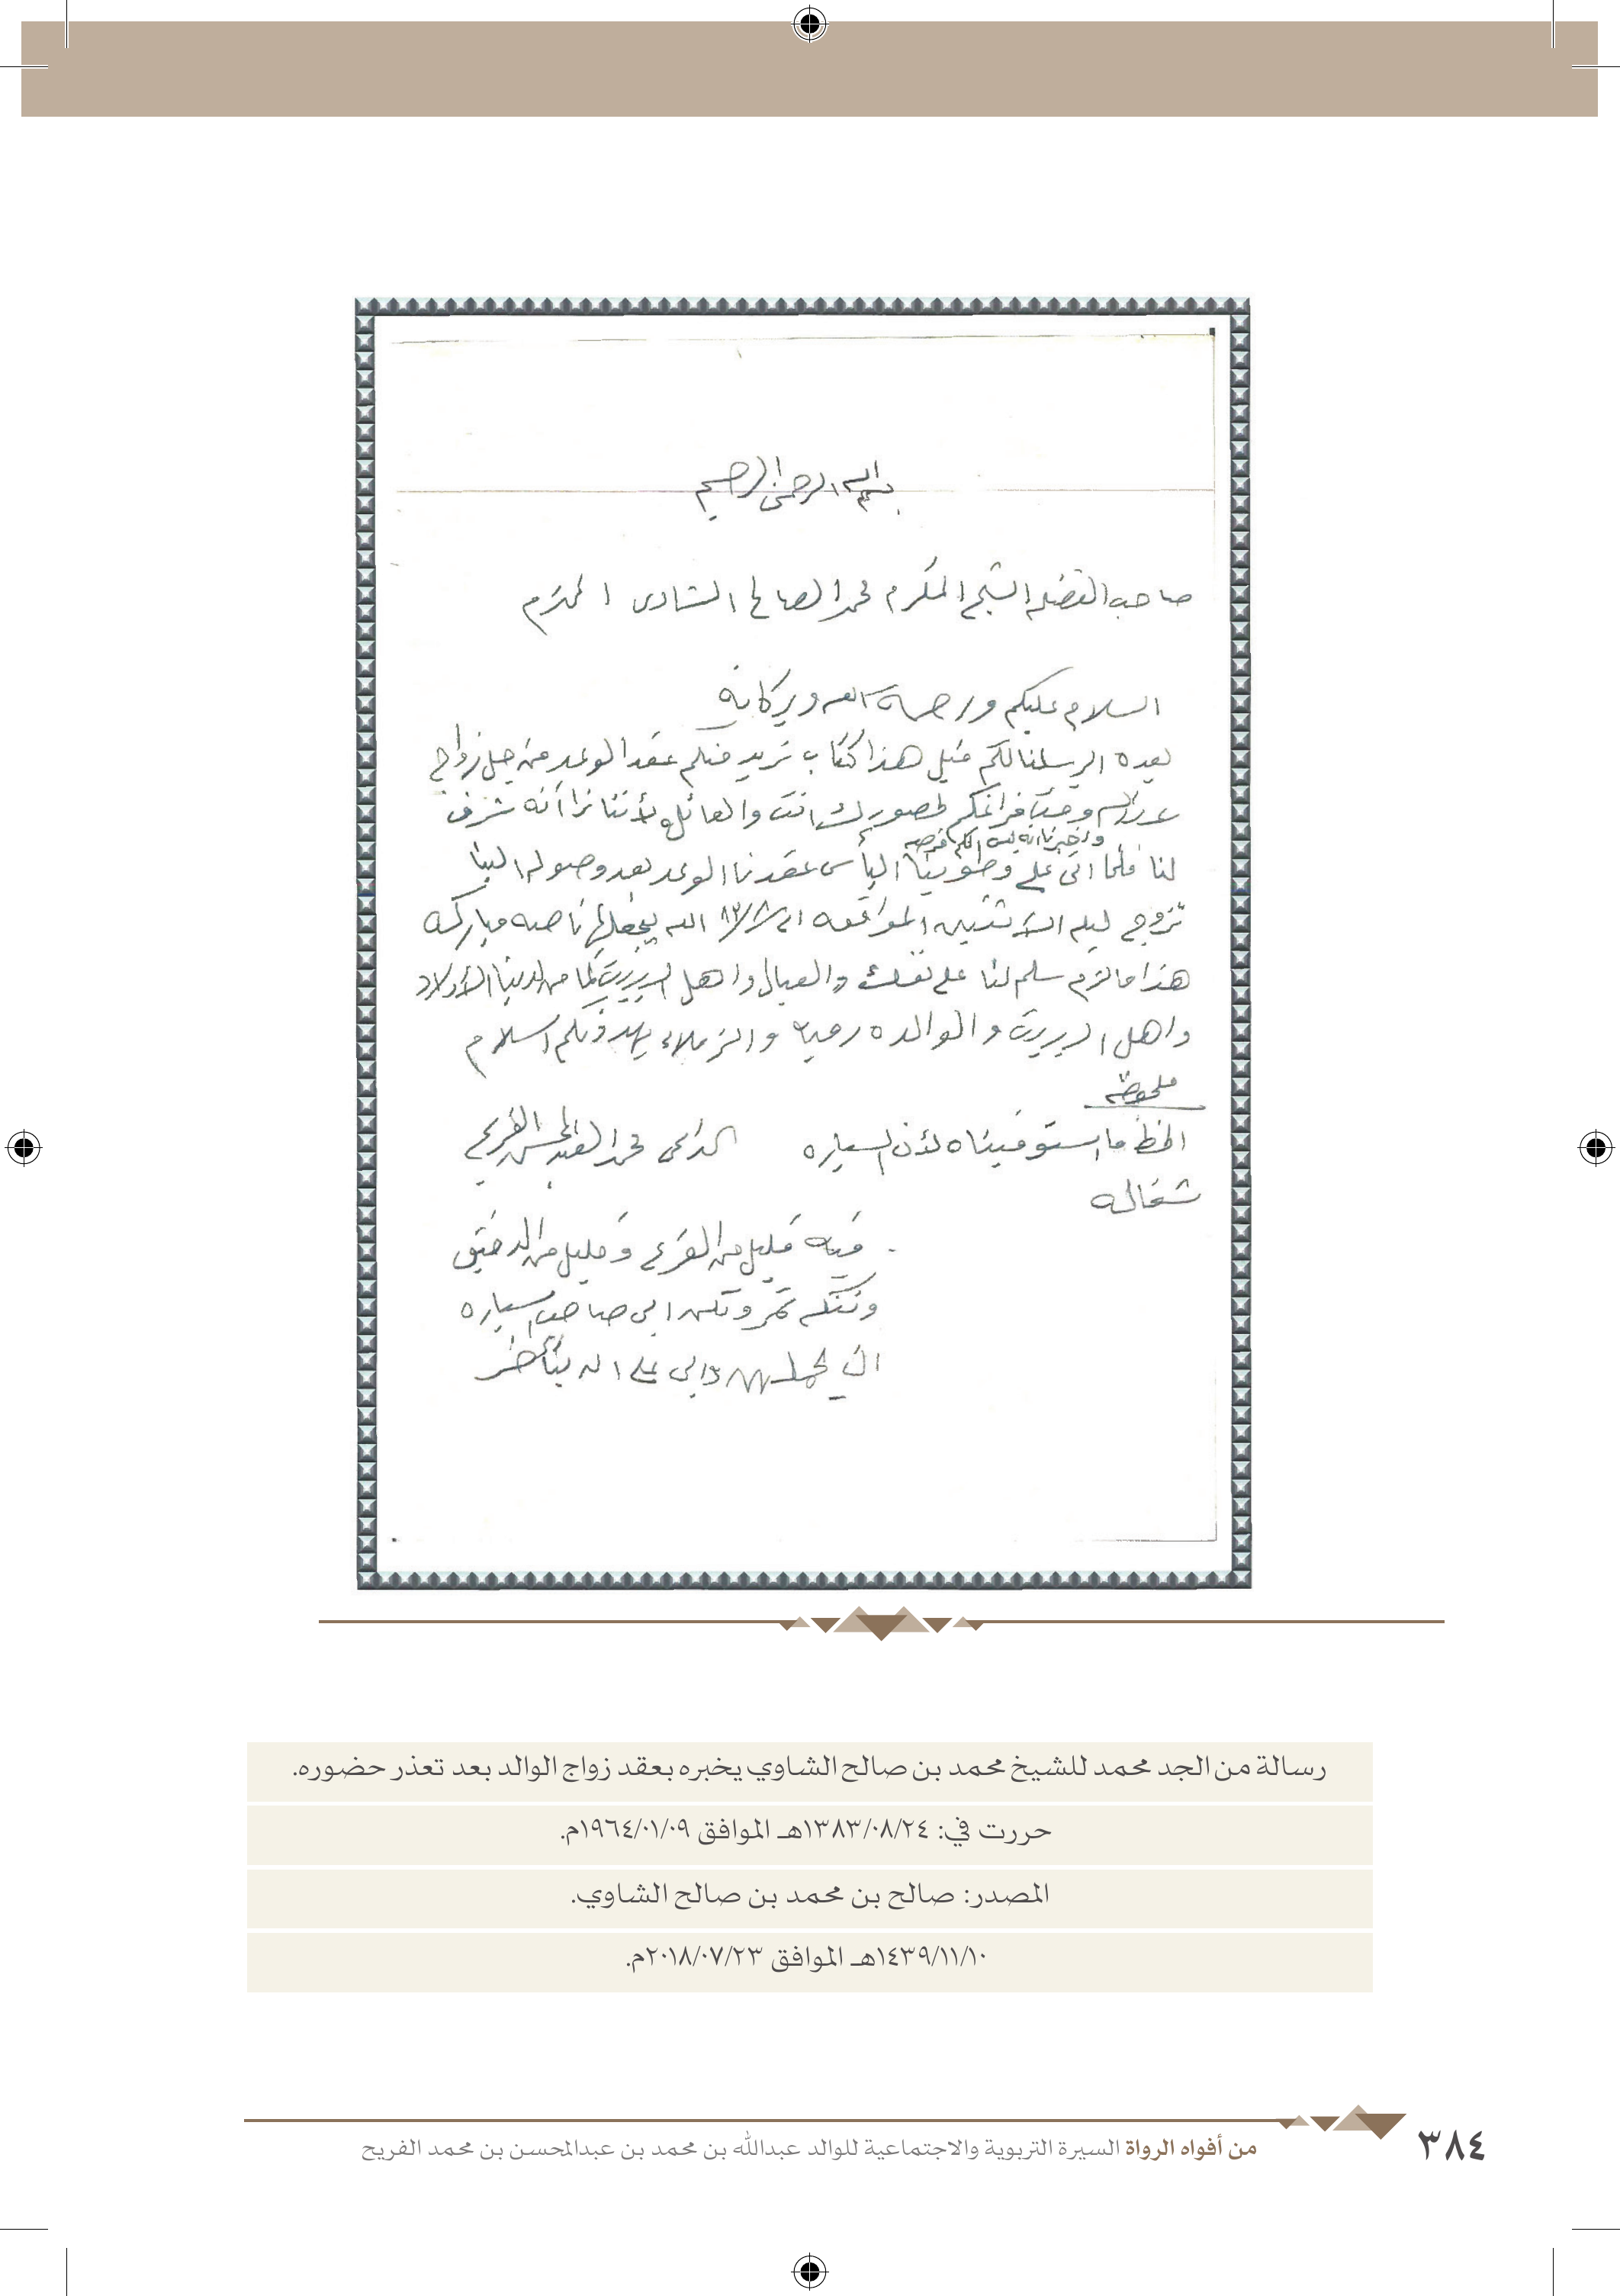 بسم الله الرحمن الرحيم
صاحب الفضيله الشيخ المكرم محمد الصالح الشاوى المحترم
السلام عليكم ورحمة الله وبركاته
بعده ارسلنا لكم قبل هذا كتاب نريد منكم عقد الوعد من جل زواج
عبدالله وحنا فرانمكم لحضورك انت والعائله لأننا نرا أنه شرف
واخبرنا انه ليس لكم فرصه
لنا فلما اتى علي وطوبينا الياس عقدنا الوعد بعد وصوله الينا
تزوج ليلة الأثنين الموافقه ٨٣/٨/٢١ الله يجعلها ناصيه مباركه
هذا ما لزم سلم لنا على نفسك والعيال واهل البيت كما من لدينا الأولاد
واهل البيت والوالده رقيه والزملاء يهدونكم السلام
ملحوظه
الخظ ما استوفيناه لأن السياره
شغاله
الداعى محمد العبدالمحسن الفريح
فيه قليل من القرع وقليل من الدقيق
وتنكة تمر وتكسرا بى صاحب السياره
الى على الله يتأخر
رسالة من الجد محمد للشيخ محمد بن صالح الشاوي يخبره بعقد زواج الوالد بعد تعذر حضوره.
حررت في: ١٣٨٣/٠٨/٢٤هـ الموافق ١٩٦٤/٠١/٠٩م.
المصدر: صالح بن محمد بن صالح الشاوي.
١٤٣٩/١١/١٠هـ الموافق ٢٠١٨/٠٧/٢٣م.
٣٨٤ من أفواه الرواة السيرة التربوية والاجتماعية للوالد عبدالله بن محمد بن عبدالمحسن بن محمد الفريح